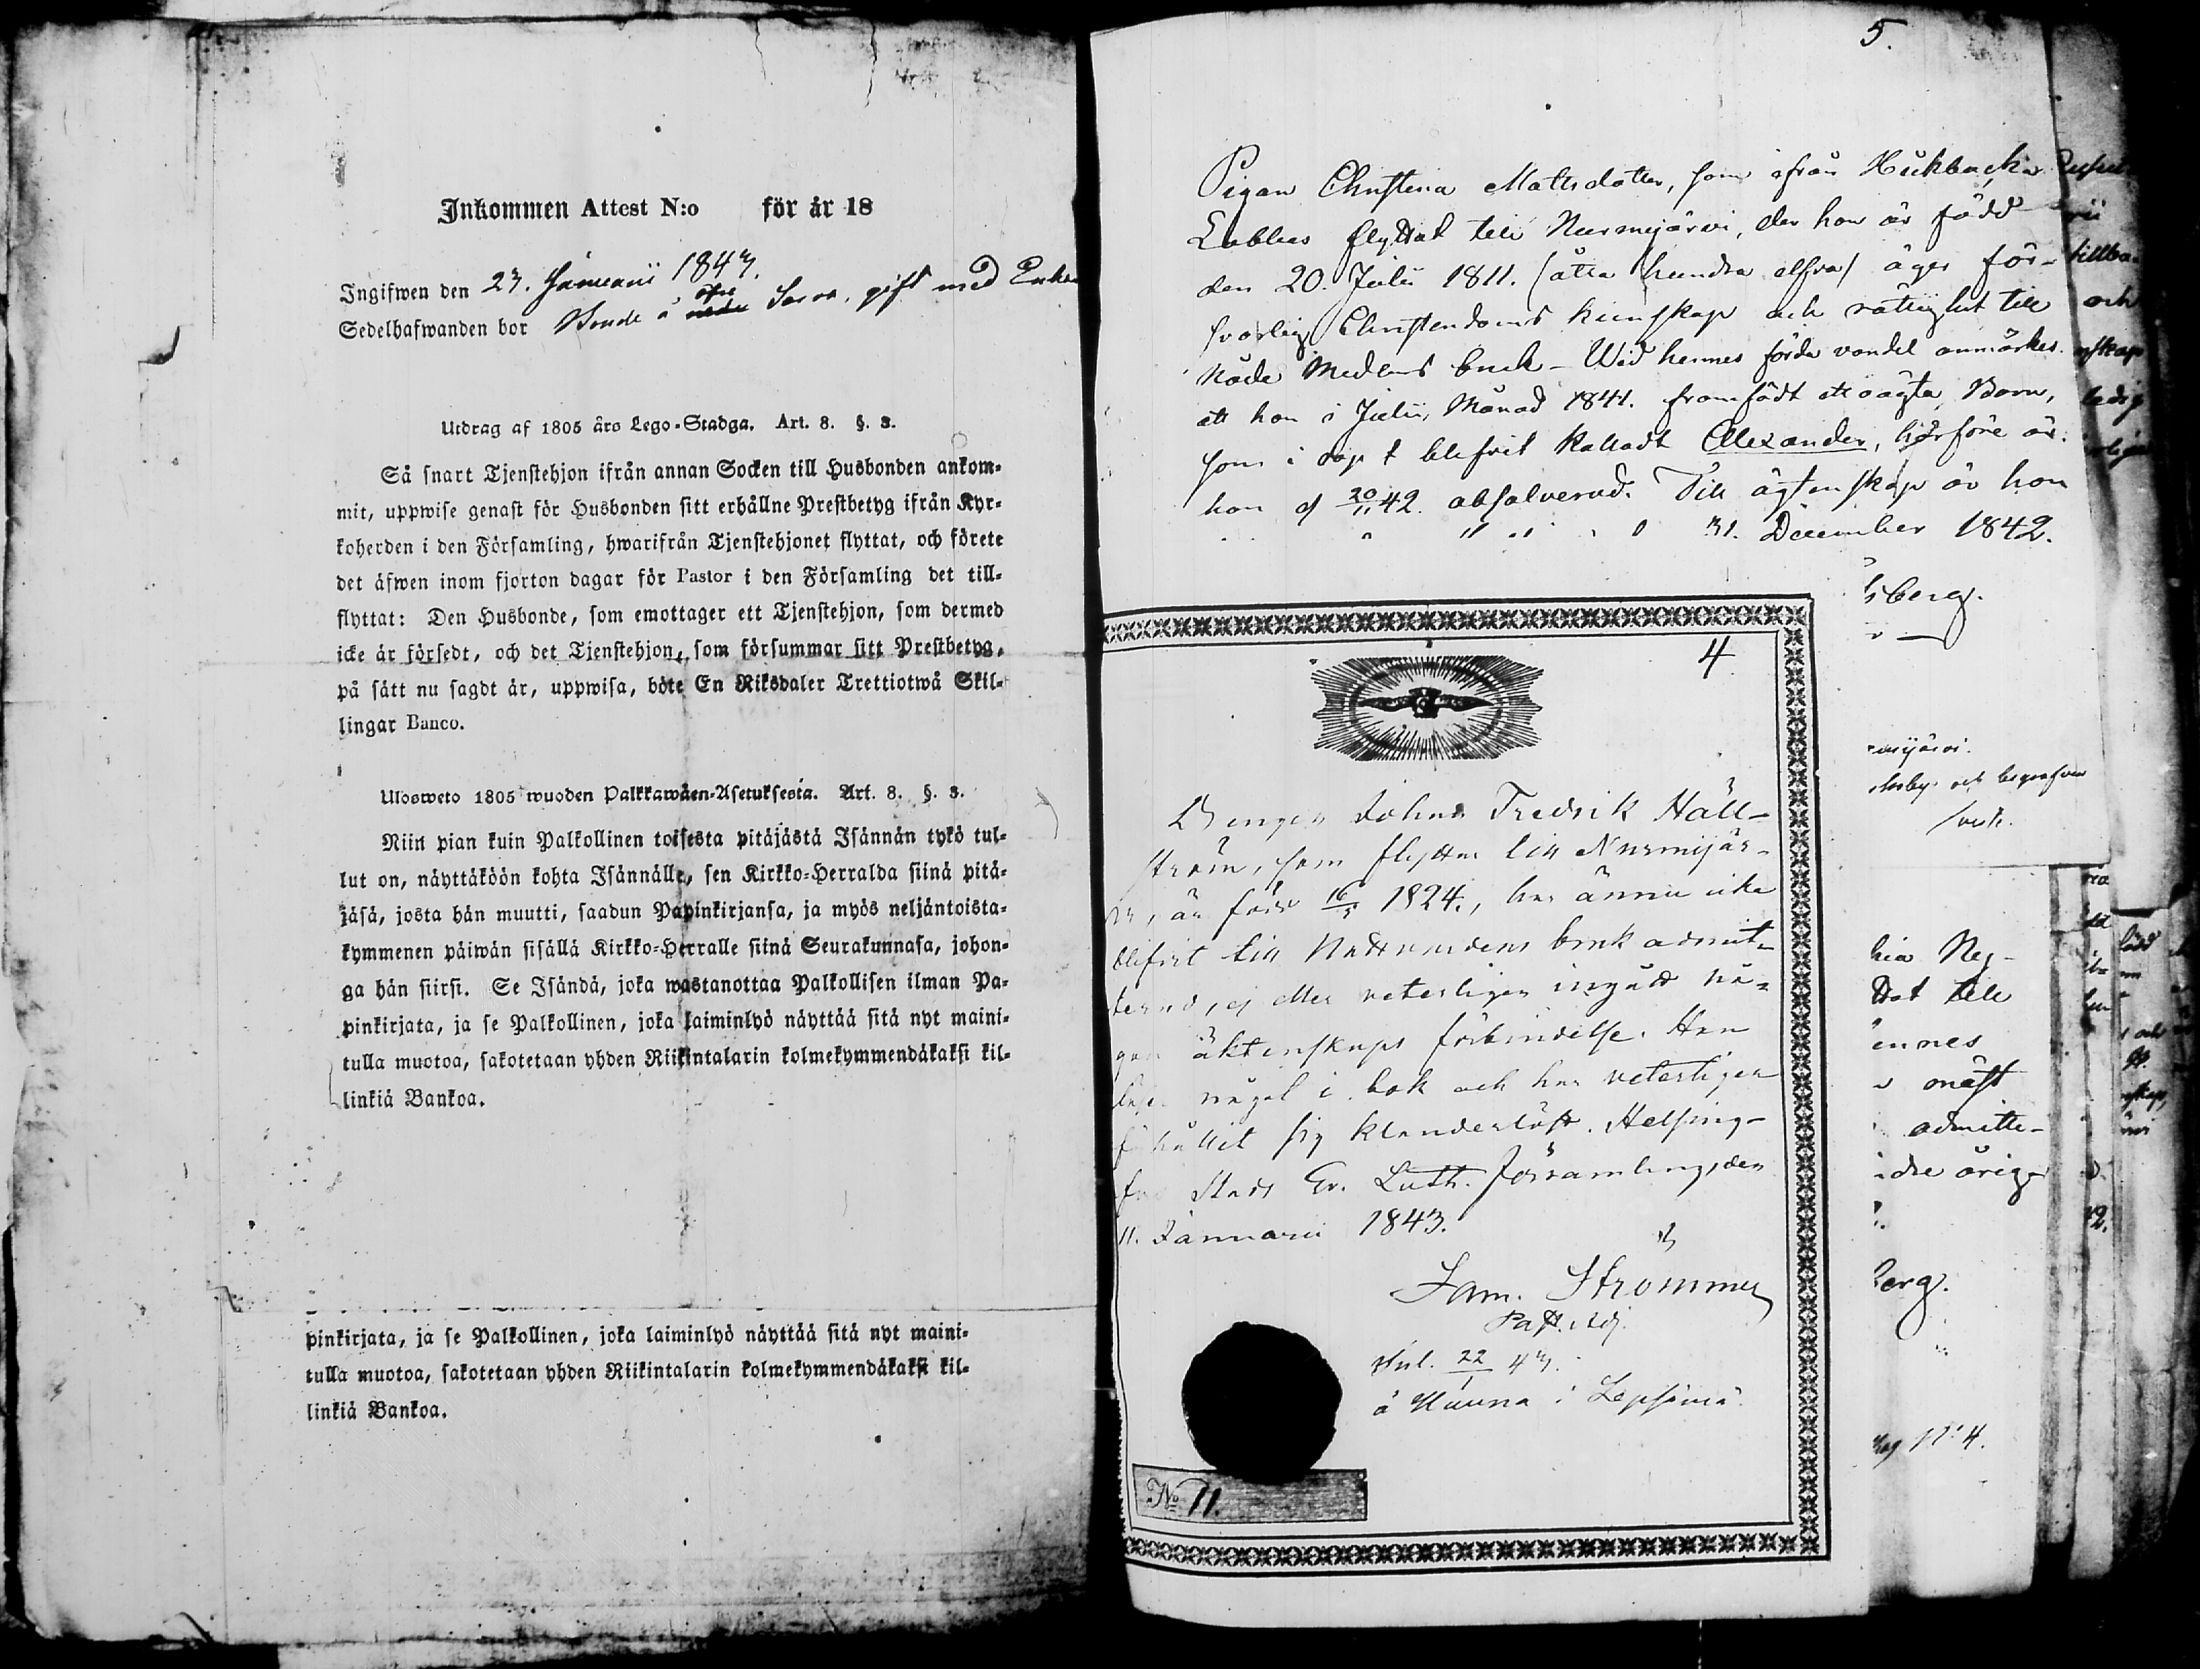 Inkommen Attest N:o för år 18
Ingifwen den 23. Januarii 1843.
Sedelhafwanden bor Bonde å öfre gift med Enkan
Utdrag af 1805 års Lego-Stadga. Art. 8. §. 3.
Så snart Tjenstehjon ifrån annan Socken till Husbonden ankom-
mit, uppwise genast för Husbonden sitt erhållne Prestbetyg ifrån Kyr-
koherden i den Församling, hwarifrån Tjenstehjonet flyttat, och förete
det äfwen inom fjorton dagar för Pastor i den Församling det till-
flyttat: Den Husbonde, som emottager ett Tjenstehjon, som dermed
icke är försedt, och det Tjenstehjon, som försummar sitt Prestbetyg,
på sätt nu sagdt är, uppwisa, böte En Riksdaler Trettiotwå Skil-
lingar Banco.
Ulosweto 1805 wuoden Palkkawäen-Asetuksesta. Art. 8. §. 3.
Niin pian kuin Palkollinen toisesta pitäjästä Isännän tykö tul-
lut on, näyttäköön kohta Isännälle, sen Kirkko-Herralda siinä pitä-
jäsä, josta hän muutti, saadun Papinkirjansa, ja myös neljäntoista-
kymmenen päiwän sisällä Kirkko-Herralle siinä Seurakunnasa, johon-
ga hän siirsi. Se Isändä, joka wastanottaa Palkollisen ilman Pa-
pinkirjata, ja se Palkollinen, joka laiminlyö näyttää sitä nyt maini-
tulla muotoa, sakotetaan yhden Riikintalarin kolmekymmendäkaksi kil-
linkiä Bankoa.
pinkirjata, ja se Palkollinen, joka laiminlyö näyttää sitä nyt maini-
tulla muotoa, sakotetaan yhden Riikintalarin kolmekymmendäkaksi kil-
linkiä Bankoa.
5.
Pigan Christina Mattsdotter, som ifrån Huckbacka
Labbas flyttat till Nurmijärvi, der hon är född
den 20. Julii 1811. (åtta hundra elfva) äger för-
svarlig Christendoms kunskap och rättighet till
Nåde Medlens bruk - Wid hennes förda vandel anmärkes.
att hon i Julii Månad 1841. framfödt ett oägta Barn,
som i dopt blefvit kalladt Alexander, hvarföre är
hon d 20/11 42. absolverad. Till ägtenskap är hon
31. December 1842.
berg.
4
Drengen Johan Fredrik Häll-
ström, som flyttar till Nurmijär-
vi, är född 16/5 1824., har ännu icke
blifvit till Nattvardens bruk admit-
terad, ej eller veterligen ingått nå-
gon äktenskaps förbindelse. Han
läser någol i bok och har veterligen
förhållit sig klanderlöst. Helsing-
fors Stads Ev. Luth. församling, den
11. Januarii 1843.
Sam. Strömmer
Past. Adj.
Inl. 22/1 43.
å Nuuna i Lepsämä.
No 11.
nijärvi.
och begrafven
hia
ttat till
ennes
mäst
admitte-
idre örig
berg.
No 4.